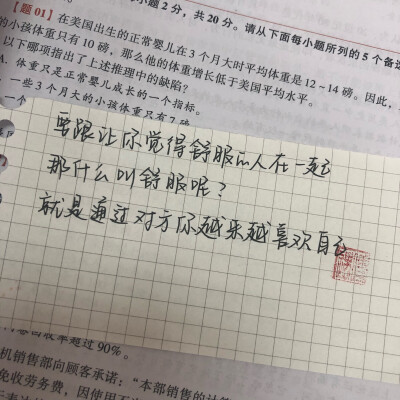 小题 2 分，共 20 分。请从下面每小题所列的 5 个备选
【题 01】在美国出生的正常婴儿在 3 个月大时平均体重是 12～14 磅。因此，
的小孩体重只有 10 磅，那么他的体重增长低于美国平均水平。
以下哪项指出了上述推理中的缺陷？
A. 体重只是正常婴儿成长的一个指标。
一些 3 个月大的小孩体重只有 7 磅
一个
要跟让你觉得舒服的人在一起
那什么叫舒服呢？
就是通过对方你越来越喜欢自己
回收率超过 90%。
机销售部向顾客承诺：“本部销售的计算
免收劳务费，因使用不